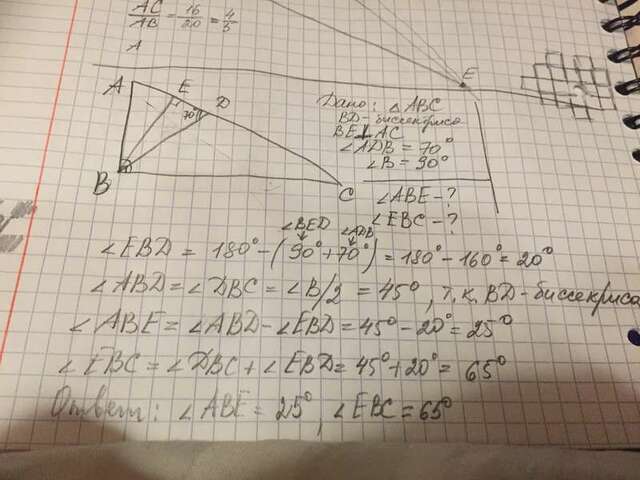 AC/AB = 16/20 = 4/5
A
E
A
E
D
70°
B
C
Дано: △ABC
BD - биссектриса
BE⊥AC
∠ADB = 70°
∠B = 90°
∠ABE - ?
∠EBC - ?
∠BED ∠ADB
∠EBD = 180° - (90° + 70°) = 180° - 160° = 20°
∠ABD = ∠DBC = ∠B/2 = 45°, т.к. BD - биссектриса
∠ABE = ∠ABD - ∠EBD = 45° - 20° = 25°
∠EBC = ∠DBC + ∠EBD = 45° + 20° = 65°
Ответ: ∠ABE = 25°, ∠EBC = 65°